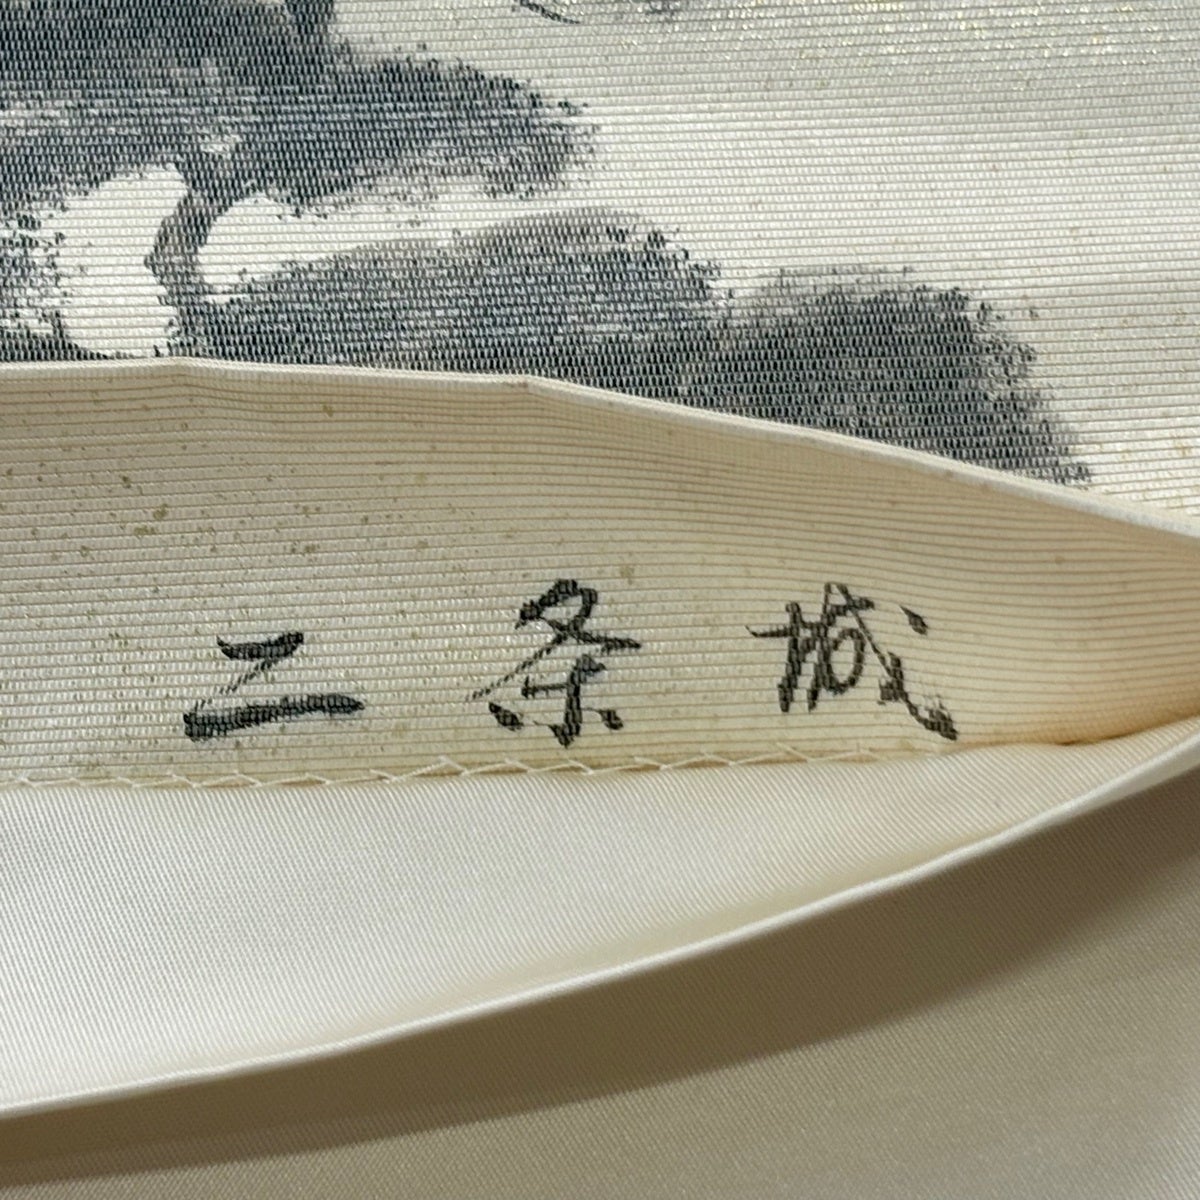 二条城